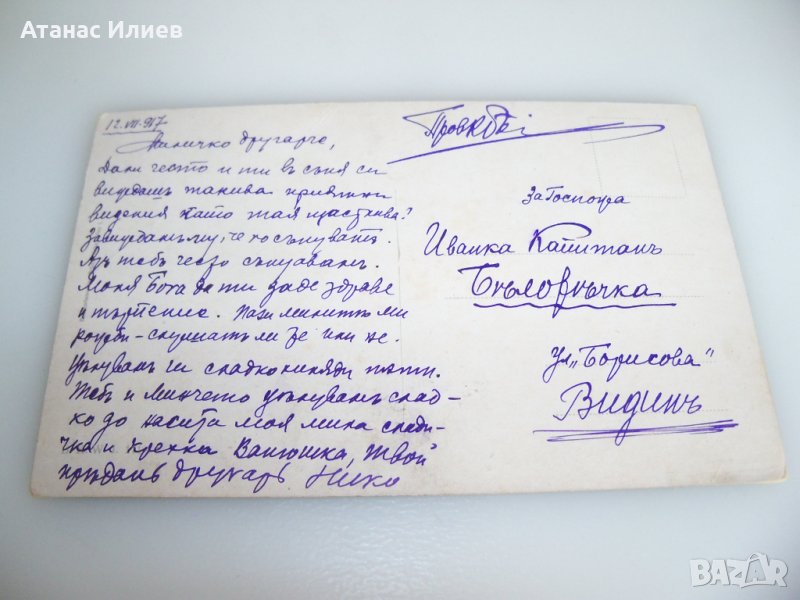 Атанас Илиев
12.VII.917
Миличко другарче,
Дали често и ти въ съня си
виждашъ такива
видения като тая щастлива?
че го сънуватъ.
Азъ тебъ често сънувамъ.
Моля Бога да ти даде здраве
и търпение. Пази ми
ли ги или не.
Цѣлувамъ ги сладко хиляди пѫти.
Тебъ и Минчето цѣлувамъ слад-
ко до насита моя мила слади-
чка и крехка Ванюшка, Твой
преданъ другарь Нико
За Госпожа
Иванка Капитанъ
Бѣлорѣчка
ул. „Борисова"
Видинъ
BAZAR